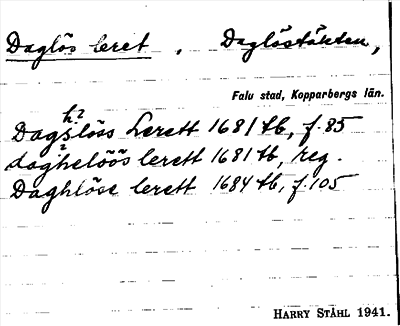 Daglös leret , Daglöstäkten,
Falu stad, Kopparbergs län.
h?
Dagslöss Lerett 1681 tb, f. 85
2
daghelöös lerett 1681 tb, reg.
Daghlöse lerett 1684 tb, f. 105
HARRY STÅHL 1941.